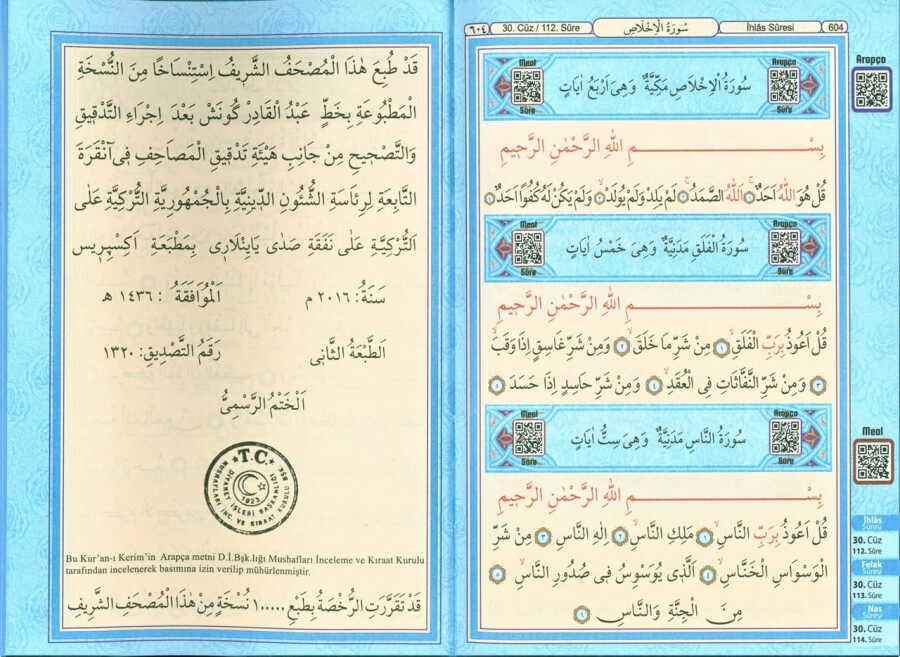 ٦٠٤
30. Cüz / 112. Sûre
سُورَةُ الْاِخْلَاصِ
İhlâs Sûresi
604
Meal
Sûre
سُورَةُ الْاِخْلَاصِ مَكِّيَّةٌ وَهِىَ اَرْبَعُ اٰيَاتٍ
Arapça
Sûre
بِسْمِ اللّٰهِ الرَّحْمٰنِ الرَّحٖيمِ
قُلْ هُوَ اللّٰهُ اَحَدٌ ١ اَللّٰهُ الصَّمَدُ ٢ لَمْ يَلِدْ وَلَمْ يُولَدْ ٣ وَلَمْ يَكُنْ لَهُ كُفُوًا اَحَدٌ ٤
Meal
Sûre
سُورَةُ الْفَلَقِ مَدَنِيَّةٌ وَهِىَ خَمْسُ اٰيَاتٍ
Arapça
Sûre
بِسْمِ اللّٰهِ الرَّحْمٰنِ الرَّحٖيمِ
قُلْ اَعُوذُ بِرَبِّ الْفَلَقِ ١ مِنْ شَرِّ مَا خَلَقَ ٢ وَمِنْ شَرِّ غَاسِقٍ اِذَا وَقَبَ
٣ وَمِنْ شَرِّ النَّفَّاثَاتِ فِى الْعُقَدِ ٤ وَمِنْ شَرِّ حَاسِدٍ اِذَا حَسَدَ ٥
Meal
Sûre
سُورَةُ النَّاسِ مَدَنِيَّةٌ وَهِىَ سِتُّ اٰيَاتٍ
Arapça
Sûre
بِسْمِ اللّٰهِ الرَّحْمٰنِ الرَّحٖيمِ
قُلْ اَعُوذُ بِرَبِّ النَّاسِ ١ مَلِكِ النَّاسِ ٢ اِلٰهِ النَّاسِ ٣ مِنْ شَرِّ
الْوَسْوَاسِ الْخَنَّاسِ ٤ اَلَّذٖى يُوَسْوِسُ فٖى صُدُورِ النَّاسِ ٥
مِنَ الْجِنَّةِ وَالنَّاسِ ٦
Arapça
Meal
İhlâs
Sûresi
30. Cüz
112. Sûre
Felak
Sûresi
30. Cüz
113. Sûre
Nas
Sûresi
30. Cüz
114. Sûre
قَدْ طُبِعَ هٰذَا الْمُصْحَفُ الشَّرٖيفُ اِسْتِنْسَاخًا مِنَ النُّسْخَةِ
الْمَطْبُوعَةِ بِخَطِّ عَبْدُ الْقَادِرْ كُونَشْ بَعْدَ اِجْرَاءِ التَّدْقٖيقِ
وَالتَّصْحٖيحِ مِنْ جَانِبِ هَيْئَةِ تَدْقٖيقِ الْمَصَاحِفِ فٖى اَنْقَرَةَ
التَّابِعَةِ لِرِئَاسَةِ الشُّئُونِ الدّٖينِيَّةِ بِالْجُمْهُورِيَّةِ التُّرْكِيَّةِ عَلٰى
اَلتُّرْكِيَّةِ عَلٰى نَفَقَةِ صَدٰى يَايِنْلَارِى بِمَطْبَعَةِ اَكِسْپِرِيس
سَنَةُ: ٢٠١٦ م اَلْمُوَافَقَةُ : ١٤٣٦ ه
اَلطَّبْعَةُ الثَّانٖى رَقَمُ التَّصْدٖيقِ: ١٣٢٠
اَلْخَتْمُ الرَّسْمِىُّ
T.C.
DİYANET İŞLERİ BAŞKANLIĞI
MUSHAFLARI İNC. VE KIRAAT KURULU BŞK
1923
Bu Kur'an-ı Kerim'in Arapça metni D.İ.Bşk.lığı Mushafları İnceleme ve Kıraat Kurulu
tarafından incelenerek basımına izin verilip mühürlenmiştir.
قَدْ تَقَرَّرَتِ الرُّخْصَةُ بِطَبْعِ ١٠٠٠٠ نُسْخَةٍ مِنْ هٰذَا الْمُصْحَفِ الشَّرٖيفِ